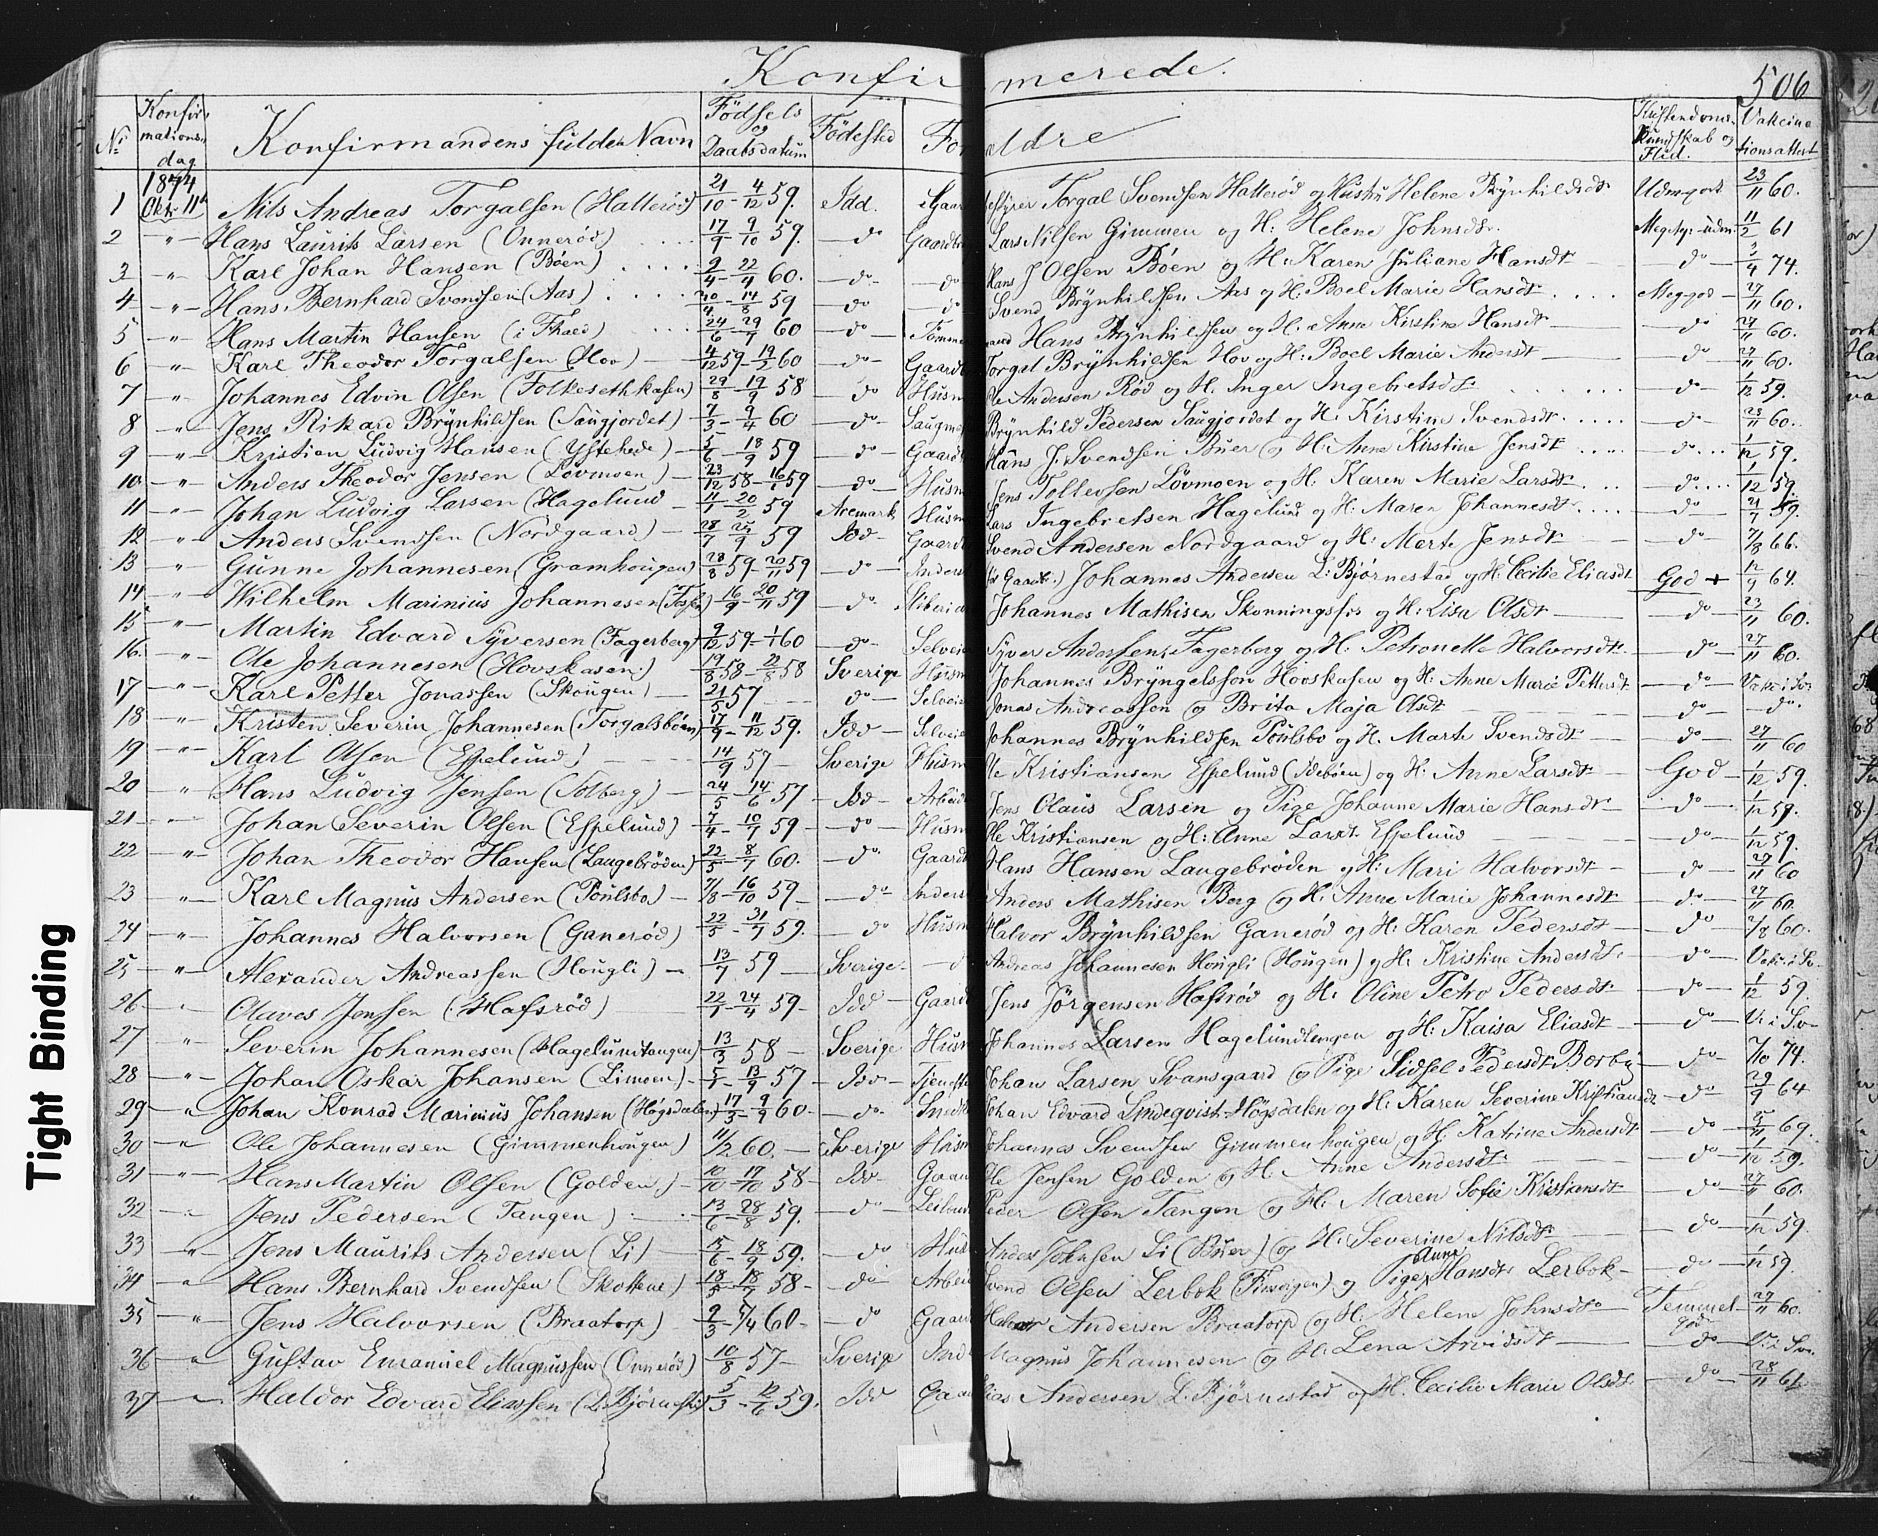 Konfirmerede.
506
Nr. Konfirmationsdag Konfirmandens fulde Navn Födsels og Daabsdatum Födested Forældre Kristendoms Kundskab og Flid. Vakcinationsattest
1874
1 Oktr. 11te Nils Andreas Torgalsen (Hallerød) 21/10 - 4/12 59. Idd. Torgal Svendsen Hallerød og Hustru Helene Brynhildsdr Udm. godt 23/11 60.
2 -"- Hans Laurits Larsen (Onnerød) 17/9 - 9/10 59. do Gaardbr Lars Nilsen Gimmen og H: Helene Johnsdr. 11/2 61
3 -"- Karl Johan Hansen (Böen) 2/4 - 22/4 60. do do Hans J Olsen Böen og H: Karen Juliane Hansdt do 3/4 74.
4 -"- Hans Bernhard Svendsen (Aas) 14/8 59 do do Svend Brynhildsen Aas og H: Boel Marie Hansdt. Meg god 27/11 60.
5 -"- Hans Martin Hansen 24/6 - 29/7 60 do Tömme Hans Brynhildsen og H: Anne Kirstine Hansdt do 27/11 60.
6 -"- Karl Theodor Torgalsen (Hov) 4/12 59 - 19/2 60 do Gaardb Torgal Brynhildsen Hov og H: Boel Marie Andersdt do 27/11 60.
7 -"- Johannes Edvin Olsen (Folkesethkasen) 29/8 - 19/9 58 do Husm Ole Andersen Röd og H. Inger Ingebretsdt do 1/12 59.
8 -"- Jens Rikard Brynhildsen (Saugjordet) 7/3 - 9/4 60 do Saugm Brynhild Pedersen Saugjordet og H: Kirstine Svendsdt. do 23/11 60.
9 -"- Kristien Ludvig Hansen (Ystehede) 5/6 - 18/9 59 do Gaardb Hans J. Svendsen Buer og H: Anne Kirstine Jensdt do 1/12 59.
10 -"- Anders Theodor Jensen (Lövmoen) 23/12 58 - 16/1 59 do Husm Jens Tollevsen Lövmoen og H. Karen Marie Larsdt. do 1/12 59
11 -"- Johan Ludvig Larsen (Hagelund 11/1 - 20/2 59 Aremark Husm Lars Ingebretsen Hagelund og H: Maren Johannesdt. do 21/7 59.
12 -"- Anders Svendsen (Nordgaard) 28/7 - 25/9 59 Idd Gaardb Svend Andersen Nordgaard og H: Marte Jensdt do 7/8 66.
13 -"- Gunne Johannesen (Gramhougen) 28/8 59 - 20/11 59 do Inderst Johannes Andersen L: Bjørnestad og H: Cecilie Eliasdt God + 12/9 64.
14 -"- Wilhelm Marinius Johannesen 16/9 - 20/11 59 do Johannes Mathisen Skonningsfos og H: Lisa Olsdt do 23/11 60.
15 Martin Edvard Syversen (Fagerberg) 9/12 59 - 1/1 60 do Selveier Syver Andersen Fagerberg og H. Petronelle Halvorsdt. do 27/11 60.
16 -"- Ole Johannesen (Hovskasen) 19/8 58 - 22/8 58 Sverige Husm Johannes Bryngelsson Hovskasen og H: Anne Marie Pettersdt do Vak i Sv
17 -"- Karl Petter Jonassen (Skougen) 21/5 57 do Selveier Jonas Andreassen og Brita Maja Olsdt do do
18 -"- Kristen Severin Johannesen (Torgalsböen) 17/9 - 11/12 59. Idd Selveier Johannes Brynhildsen Poulsbo og H. Marte Svendsdt do 27/11 60
19 -"- Karl Olsen (Espelund) 14/9 57 Sverige Husm Ole Kristiansen Espelund (Idebøen) og H: Anne Larsdt God 1/12 59.
20 -"- Hans Ludvig Jensen (Solberg) 24/5 - 14/6 57 Idd Arbeid Jens Olaus Larsen og Pige Johanne Marie Hansdt do 1/12 59.
21 -"- Johan Severin Olsen (Espelund) 7/4 - 10/7 59 do Husm Ole Kristiansen og H: Anne Larsdt Espelund do 1/12 59.
22 -"- Johan Theodor Hansen (Laugebröden) 22/5 - 8/7 60. do Gaardb Hans Hansen Laugebröden og H: Mari Halvorsdt do 27/11 60
23 -"- Karl Magnus Andersen (Poulsbo) 7/8 - 16/10 59 do Inders Anders Mathisen Berg og H: Anne Marie Johannesdt do 27/11 60.
24 -"- Johannes Halvorsen (Ganerød) 22/5 - 31/7 59. do Husm Halvor Brynhildsen Ganerød og H: Karen Pedersdt do 2/8 60.
25 -"- Alexander Andreassen (Hougli) 13/7 59 Sverige Andreas Johannesen Hougli (Hougen) og H. Kristine Andersdt do Vak: i Sv
26 Olaves Jenssen (Hafsröd) 22/1 - 24/4 59. Idd Gaardb Jens Jörgensen Hafsröd og H: Oline Petro Pedersdt do 1/12 59.
27 -"- Severin Johannesen (Hagelundtangen) 13/3 58 Sverige Husm Johannes Larsen Hagelundtangen og H: Kaisa Eliasdt do V: i Sv
28 -"- Johan Oskar Johansen (Limoen) 5/7 - 13/9 57 Idd Tjeneste Johan Larsen Svansgaard og Pige Sidsel Pedersdt Borby do 7/10 74.
29 -"- Johan Konrad Marinius Johansen (Högsdalen) 17/3 - 9/9 60 do Smed Johan Edvard Lindeqvist Högsdalen og H: Karen Severine Kristiansdt do 29/9 64
30 -"- Ole Johannesen (Gimmenhougen) 11/2 60. Sverige Husm Johannes Svendsen Gimmenhougen og H. Katrine Andersdt do 69.
31 -"- Hans Martin Olsen (Golden) 10/10 - 17/10 58 Idd Gaard Ole Jensen Golden og H. Anne Andersdt do 1/12 59.
32 -"- Jens Pedersen (Tangen) 13/6 - 28/8 59. do Peder Olsen Tangen og H: Maren Sofie Kristiansdt do 27/11 60.
33 -"- Jens Maurits Andersen (Li) 15/6 - 18/9 59. do Hus Anders Johnsen Li (Buer) og H: Severine Nilsdt do 1/12 59.
34 -"- Hans Bernhard Svendsen (Skottene) 18/5 - 18/7 58 do Arbei Svend Olsen Lerbok og Pige Anne Hansdt Lerbok do 1/12 59.
35 -"- Jens Halvorsen (Braatorp) 2/3 - 5/4 60 do Gaard Halvor Andersen Braatorp og H. Helene Johnsdt Temmel. god 27/11 60.
36 -"- Gustav Emanuel Magnussen (Onnerød) 10/8 57 Sverige Inde Magnus Johannesen og H: Lena Arvidsdt do V: i Sv.
37 -"- Haldor Edvard Eliassen (L: Bjørnest) 5/3 - 12/6 59. Idd Gaar Elias Andersen L. Bjørnestad og H. Cecilie Marie Olsdt do 28/11 61
Tight Binding